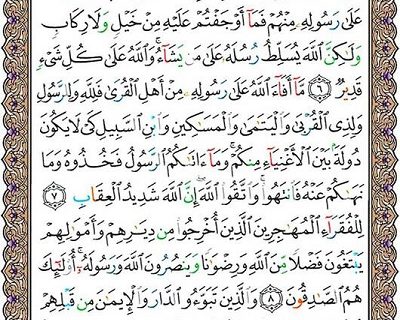 عَلَىٰ رَسُولِهِۦ مِنۡهُمۡ فَمَآ أَوۡجَفۡتُمۡ عَلَيۡهِ مِنۡ خَيۡلٖ وَلَا رِكَابٖ
وَلَٰكِنَّ ٱللَّهَ يُسَلِّطُ رُسُلَهُۥ عَلَىٰ مَن يَشَآءُۚ وَٱللَّهُ عَلَىٰ كُلِّ شَيۡءٖ
قَدِيرٞ ٦ مَّآ أَفَآءَ ٱللَّهُ عَلَىٰ رَسُولِهِۦ مِنۡ أَهۡلِ ٱلۡقُرَىٰ فَلِلَّهِ وَلِلرَّسُولِ
وَلِذِي ٱلۡقُرۡبَىٰ وَٱلۡيَتَٰمَىٰ وَٱلۡمَسَٰكِينِ وَٱبۡنِ ٱلسَّبِيلِ كَيۡ لَا يَكُونَ
دُولَةَۢ بَيۡنَ ٱلۡأَغۡنِيَآءِ مِنكُمۡۚ وَمَآ ءَاتَىٰكُمُ ٱلرَّسُولُ فَخُذُوهُ وَمَا
نَهَىٰكُمۡ عَنۡهُ فَٱنتَهُواْۚ وَٱتَّقُواْ ٱللَّهَۖ إِنَّ ٱللَّهَ شَدِيدُ ٱلۡعِقَابِ ٧
لِلۡفُقَرَآءِ ٱلۡمُهَٰجِرِينَ ٱلَّذِينَ أُخۡرِجُواْ مِن دِيَٰرِهِمۡ وَأَمۡوَٰلِهِمۡ
يَبۡتَغُونَ فَضۡلٗا مِّنَ ٱللَّهِ وَرِضۡوَٰنٗا وَيَنصُرُونَ ٱللَّهَ وَرَسُولَهُۥٓۚ أُوْلَٰٓئِكَ
هُمُ ٱلصَّٰدِقُونَ ٨ وَٱلَّذِينَ تَبَوَّءُو ٱلدَّارَ وَٱلۡإِيمَٰنَ مِن قَبۡلِهِمۡ